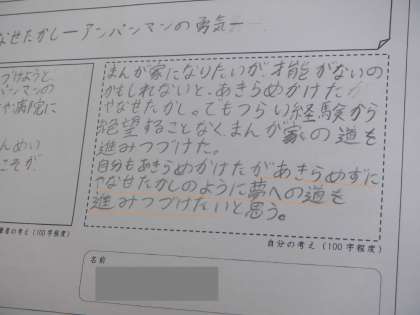 なせたかし―アンパンマンの勇気―
づけようと
パンマンの
や病院に
んめい
こそが
筆者の考え(100字程度)
まんが家になりたいが、才能がないの
かもしれないと、あきらめかけたが
やなせたかし。てもつらい経験から
絶望することなくまんが家の道を
進みつづけた。
自分もあきらめかけたがあきらめずに
やなせたかしのように夢への道も
進みつづけたいと思う。
自分の考え(100字程度)
名前